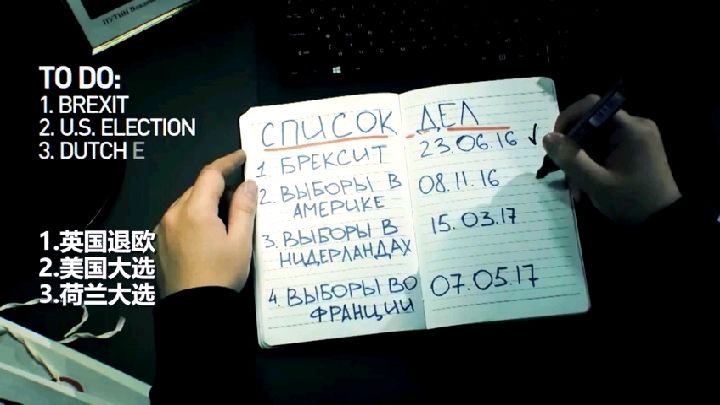 ПУТИН
TO DO:
1. BREXIT
2. U.S. ELECTION
3. DUTCH E
1.英国退欧
2.美国大选
3.荷兰大选
СПИСОК ДЕЛ
1 БРЕКСИТ 23.06.16 ✓
2. ВЫБОРЫ В 08.11.16
АМЕРИКЕ
3. ВЫБОРЫ В 15.03.17
НИДЕРЛАНДАХ
4. ВЫБОРЫ ВО 07.05.17
ФРАНЦИИ